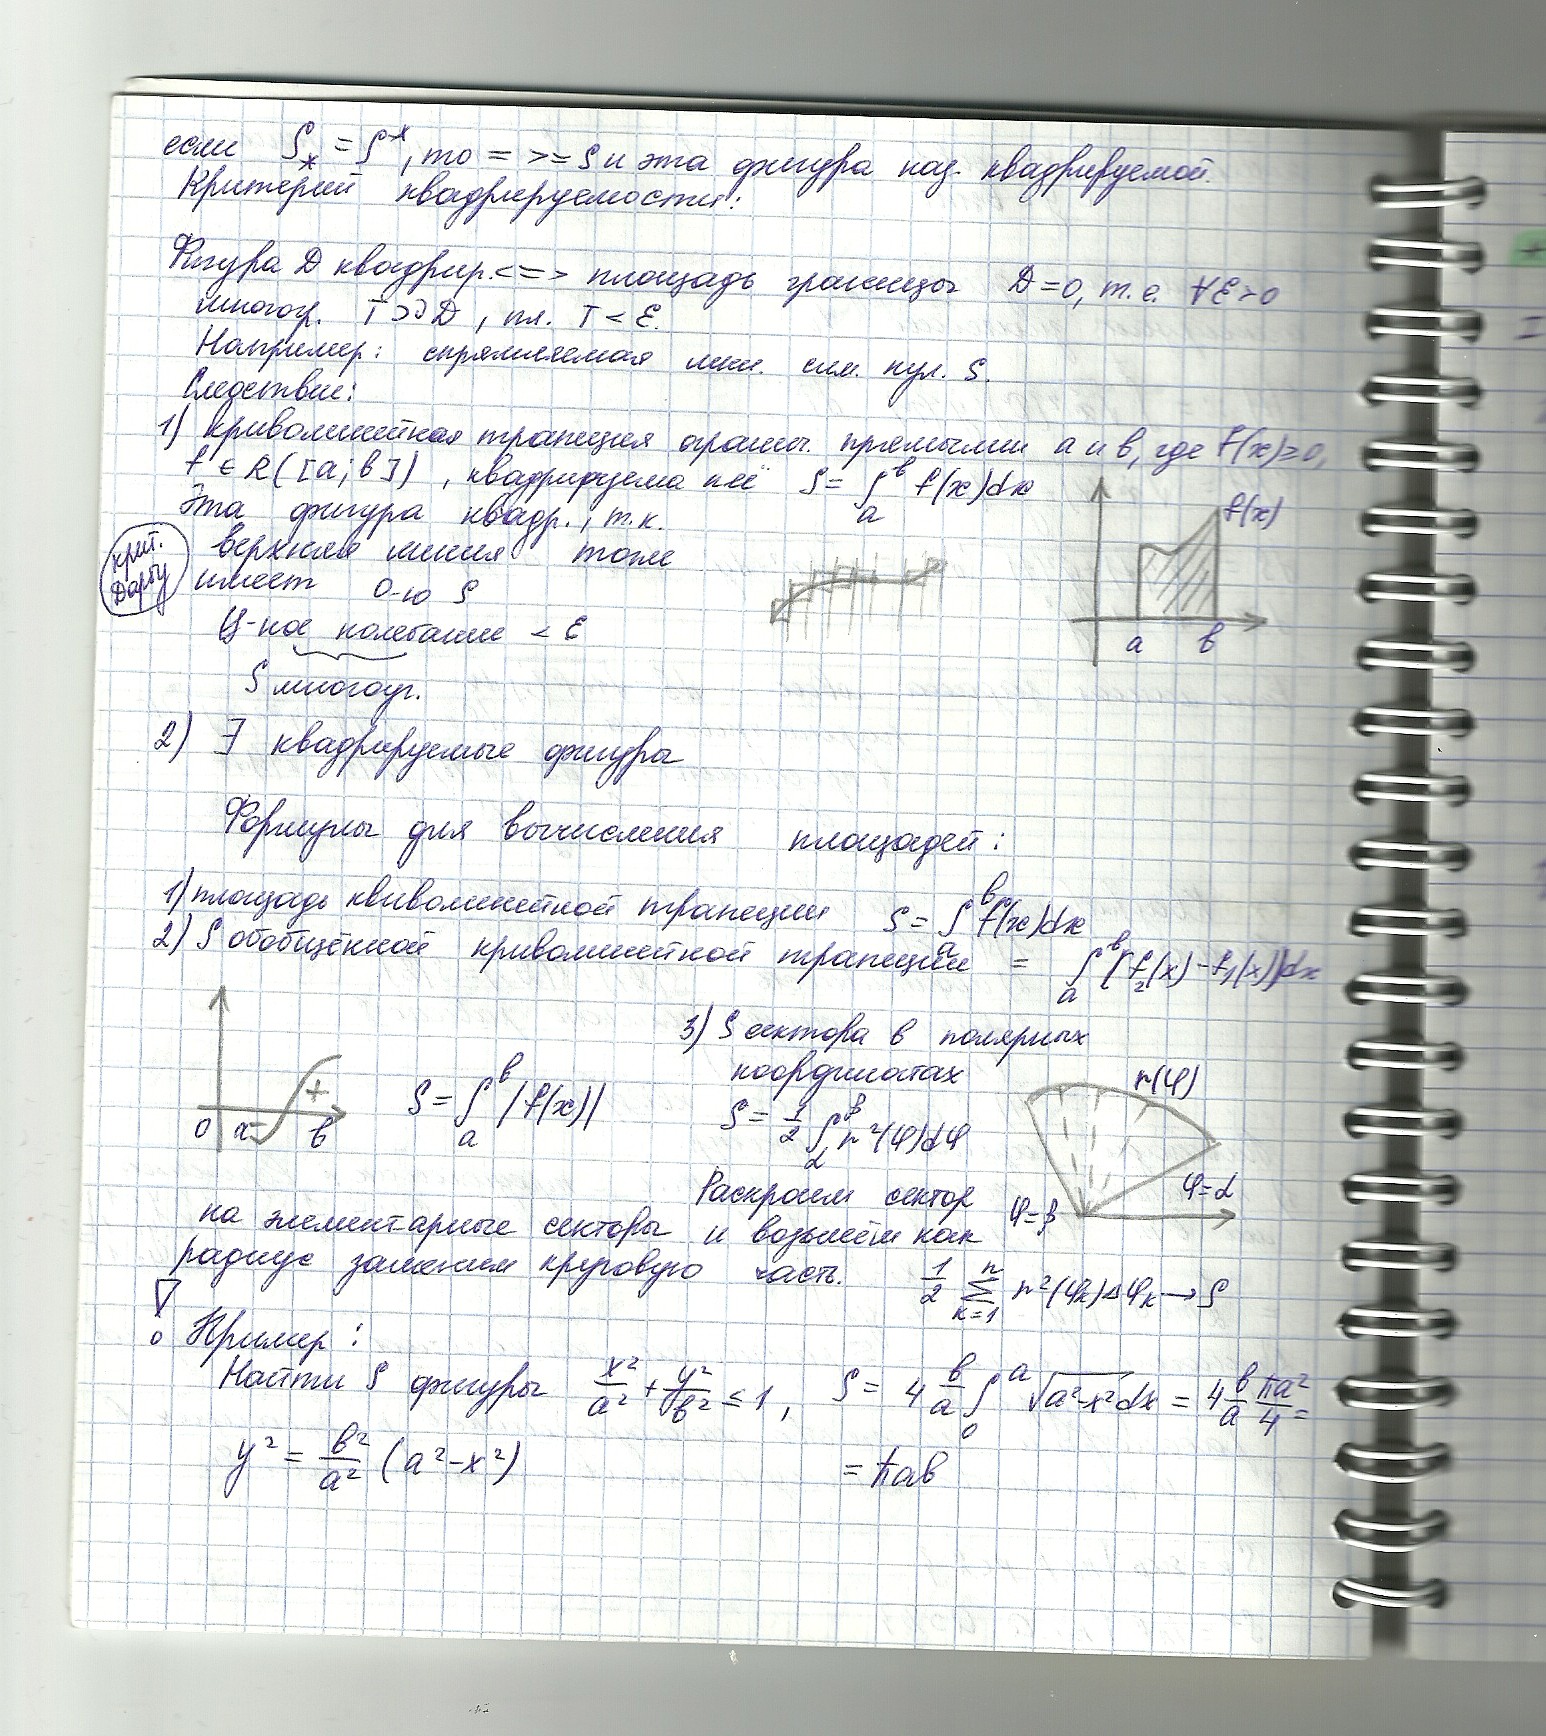 если S_* = S^*, то = >= S и эта фигура наз. квадрируемой.
Критерий квадрируемости:
Фигура D квадрир. <=> площадь границы D = 0, т.е. ∀ε>0
многоуг. T ⊃ ∂D, пл. T < ε.
Например: спрямляемая лин. им. нул. S.
Следствие:
1) криволинейная трапеция огранич. прямыми a и b, где f(x)≥0,
f ∈ R([a;b]), квадрируема и её S = ∫_a^b f(x)dx
Эта фигура квадр., т.к.
f(x)
крит. Дарбу
верхняя линия тоже
имеет 0-ю S
a b
колебание < ε
S многоуг.
2) ∃ квадрируемые фигуры
Формулы для вычисления площадей:
1) площадь квиволинейной трапеции S = ∫_a^b f(x)dx
2) S обобщённой криволинейной трапеции = ∫_a^b [f_2(x) - f_1(x)]dx
3) S сектора в полярных
координатах
r(φ)
+
0 b
S = ∫_a^b |f(x)|
S = 1/2 ∫_α^β r²(φ)dφ
Раскроим сектор
φ=α
φ=β
на элементарные секторы и возьмём как
радиус заменим круговую часть. 1/2 ∑_{k=1}^n r²(φ_k)Δφ_k → S
Пример:
Найти S фигуры x²/a² + y²/b² ≤ 1, S = 4 b/a ∫_0^a √(a²-x²) dx = 4 b/a πa²/4 =
y² = b²/a² (a²-x²) = πab